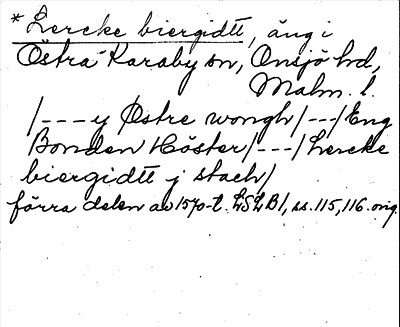 * Lercke biergidtt, äng i
Östra Karaby sn, Onsjö hd,
Malm. l.
/---y Østre wongh/---/Eng
Bonden Höster/---/Lercke
biergidtt j stach/
förra delen av 1570-t. LSLB1, ss. 115, 116. orig.